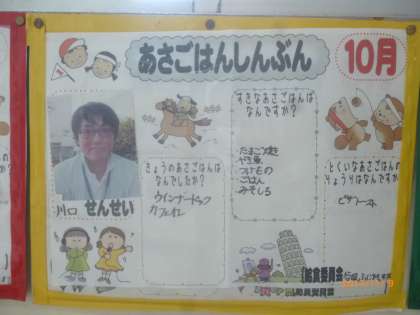 あさごはんしんぶん
10月
川口 せんせい
きょうのあさごはんは
なんでしたか？
ウインナードック
カフェオレ
すきなあさごはんは
なんですか？
たまご焼き
やき魚
つけもの
ごはん
みそしる
とくいなあさごはんの
りょうりはなんですか？
ピザトースト
給食委員会